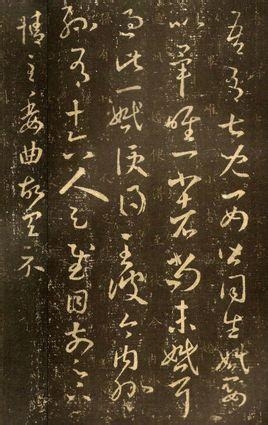 吾有七兒一女皆同生婚娶
以畢唯一小者尚未婚耳
過此一婚便得至彼今內外
孫有十六人足慰目前足下
情至委曲故具示